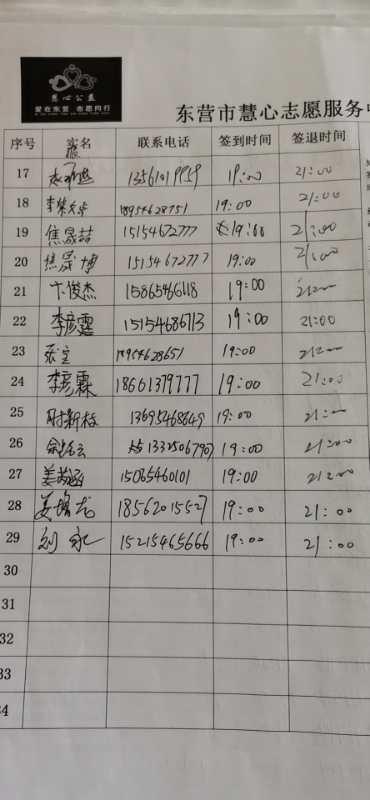 慧心公益
爱在东营 志愿同行
东营市慧心志愿服务中
序号 实名 联系电话 签到时间 签退时间
17 13561019959 19:00 21:00
18 18954628751 19:00 21:00
19 焦晟喆 15154672777 19:00 21:00
20 焦晟博 15154672777 19:00 21:00
21 卞俊杰 15865466118 19:00 21:00
22 李彦霆 15154686713 19:00 21:00
23 18954628651 19:00 21:00
24 李彦霖 18661379777 19:00 21:00
25 时新梅 13695468649 19:00 21:00
26 19:00 21:00
27 15065460101 19:00 21:00
28 18562015527 19:00 21:00
29 刘永 15215465666 19:00 21:00
30
31
32
33
34